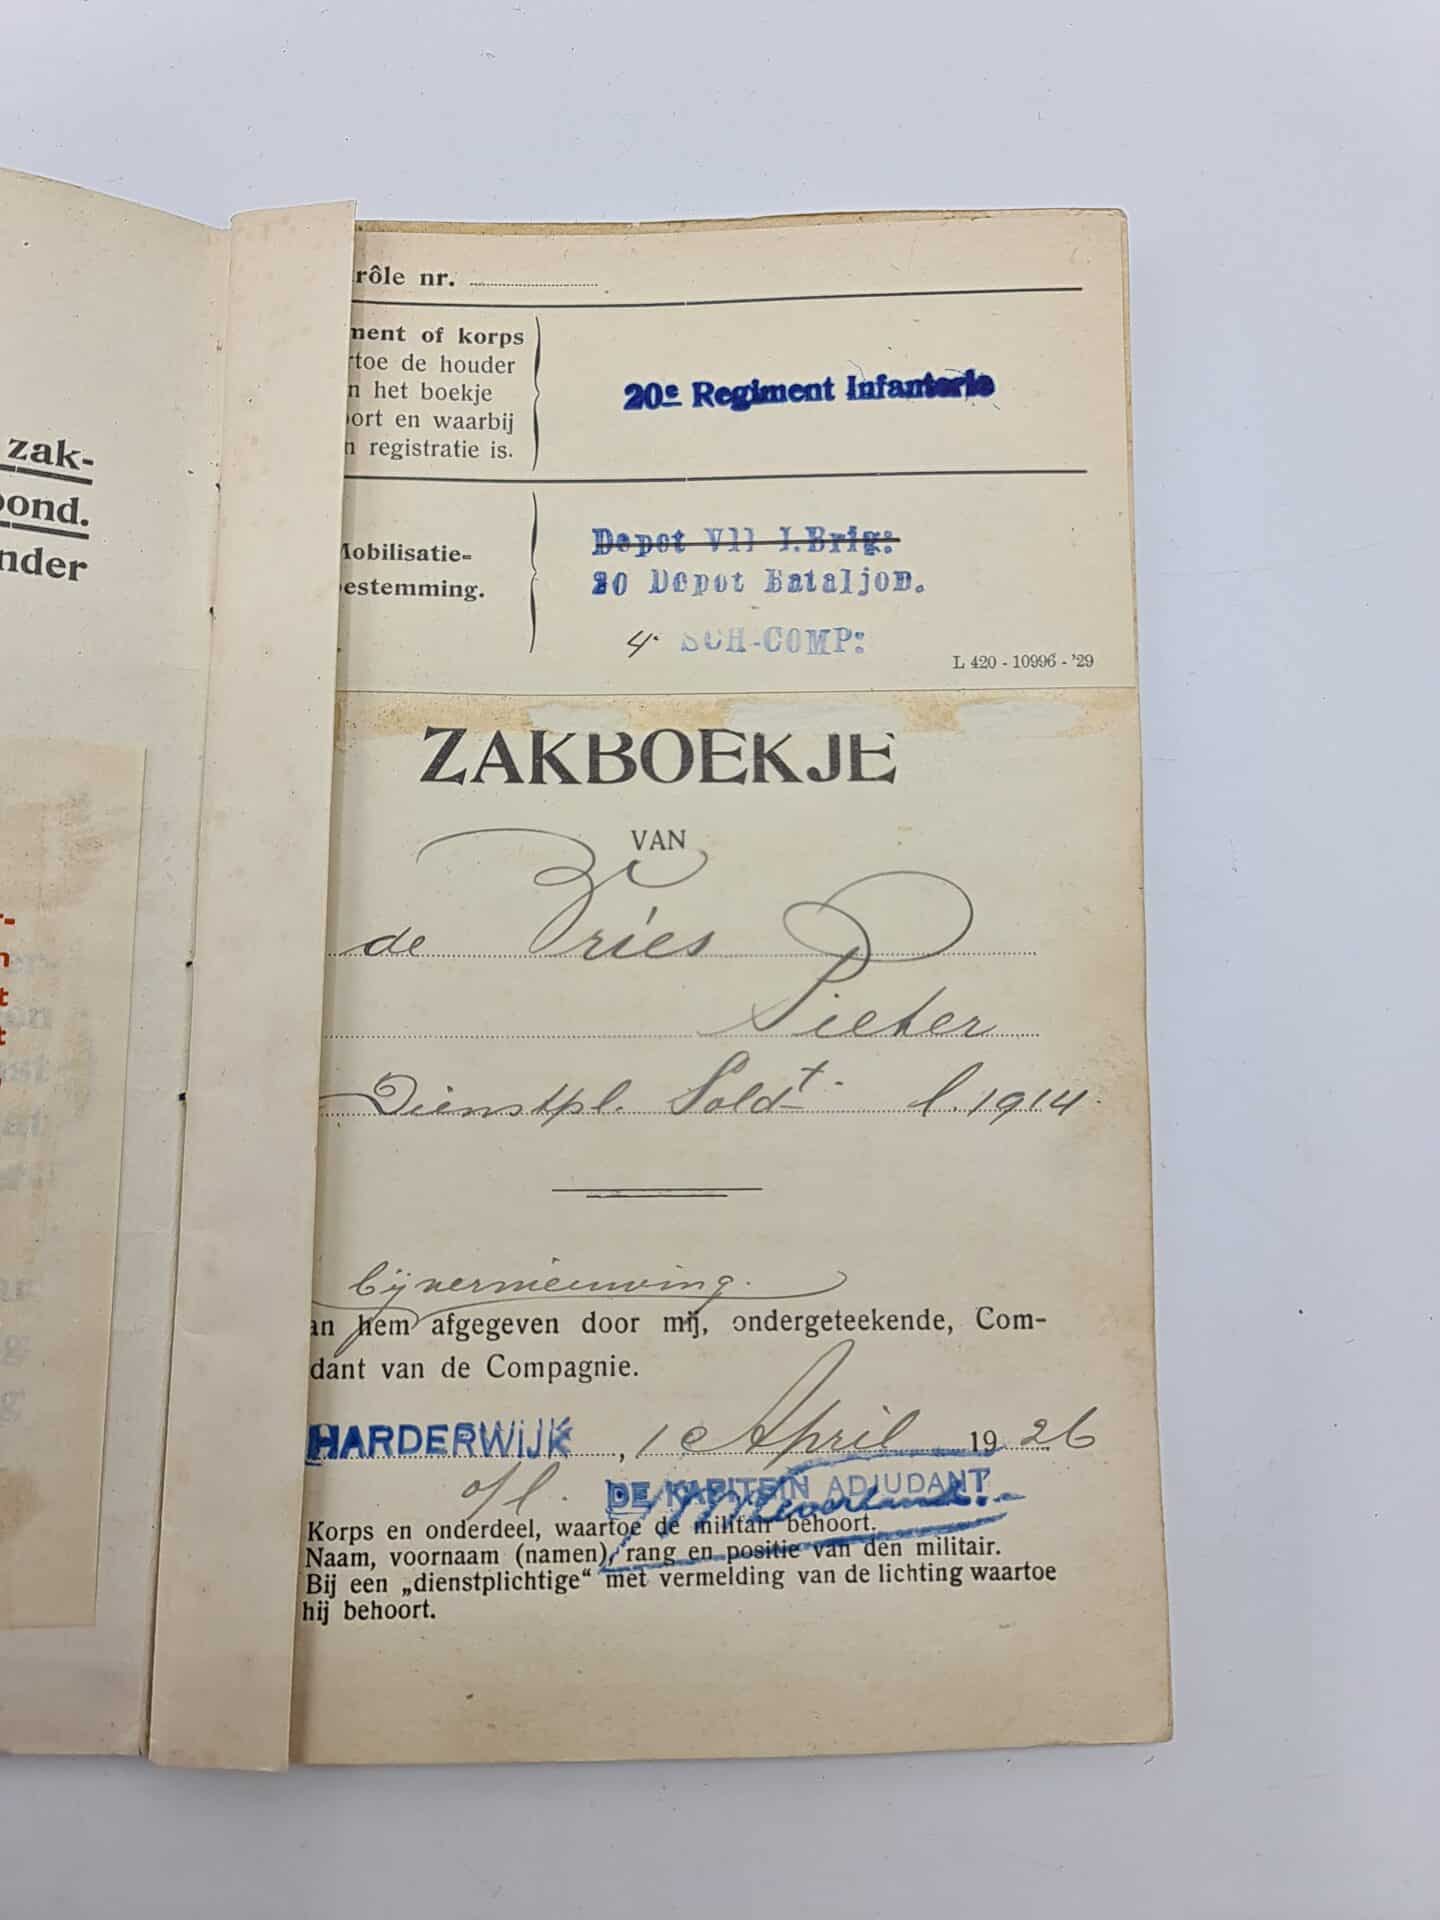 zak-
ond.
nder
rôle nr.
ment of korps
rtoe de houder
n het boekje
ort en waarbij
n registratie is.
20e Regiment Infanterie
Mobilisatie-
bestemming.
Depot VII I.Brig:
20 Depot Bataljon.
4. SCH-COMP:
L 420 - 10996 - '29
ZAKBOEKJE
VAN
de Vries
Pieter
Dienstpl. Soldt. l. 1914.
bij vernieuwing.
an hem afgegeven door mij, ondergeteekende, Com-
dant van de Compagnie.
HARDERWIJK, 1e April 1926
o/l. DE KAPITEIN ADJUDANT
Korps en onderdeel, waartoe de militair behoort.
Naam, voornaam (namen), rang en positie van den militair.
Bij een „dienstplichtige“ met vermelding van de lichting waartoe
hij behoort.